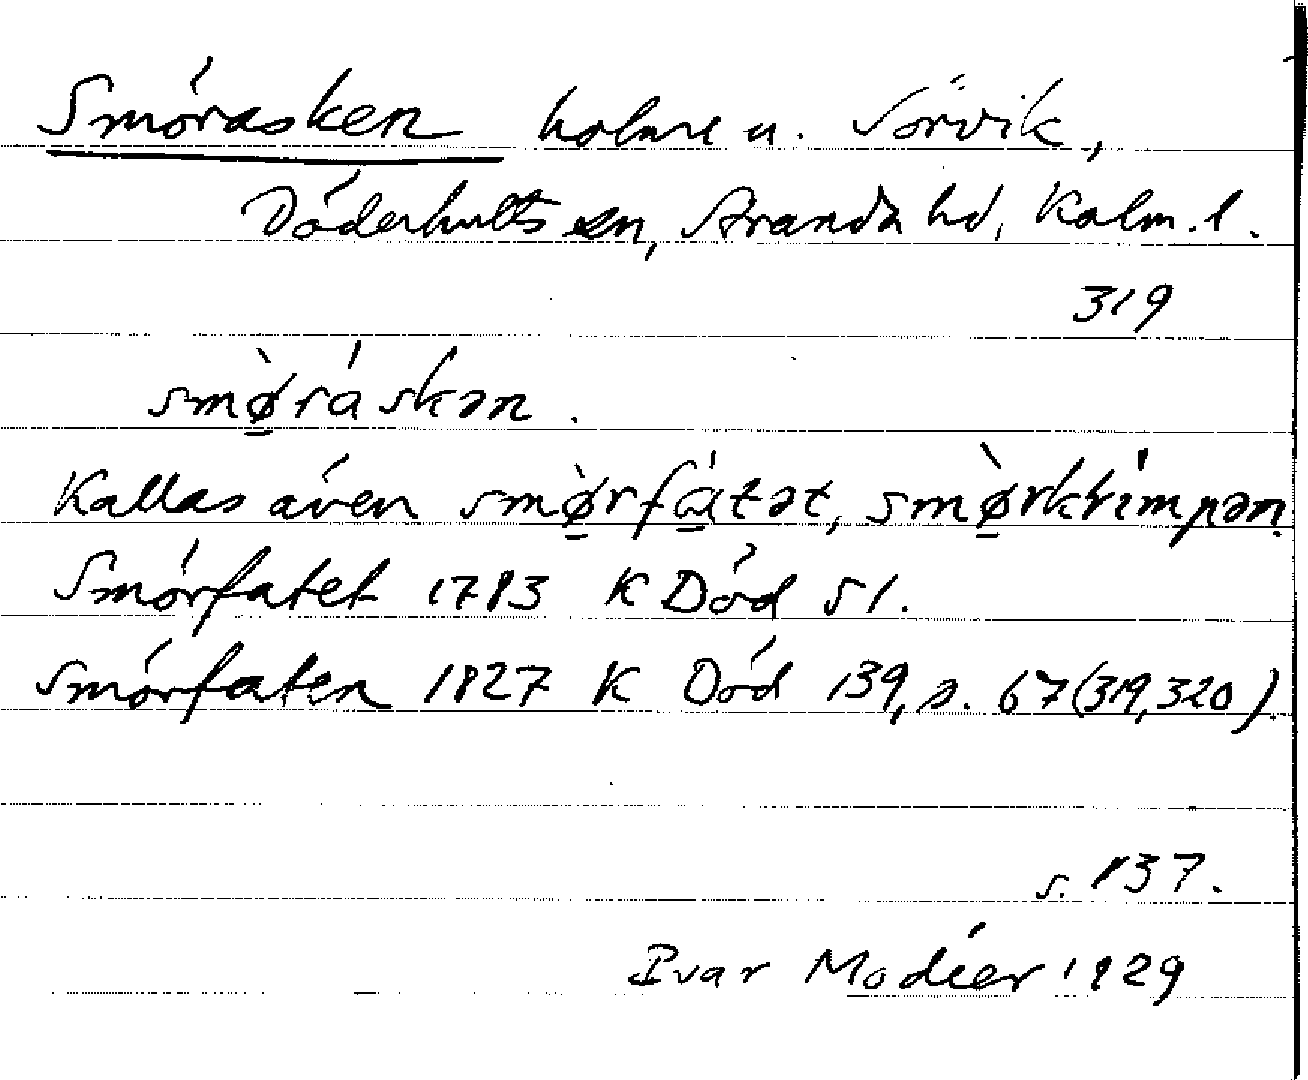 Smörasken holme u. Sörvik,
Döderhults sn, Stranda hd, Kalm. l.
319
smø̀ráskən.
Kallas även smø̀rfátət, smø̀rkrímpən
Smörfatet 1783 K Död 51.
Smörfaten 1827 K Död 139, s. 67 (319, 320)
s. 137.
Ivar Modéer 1929